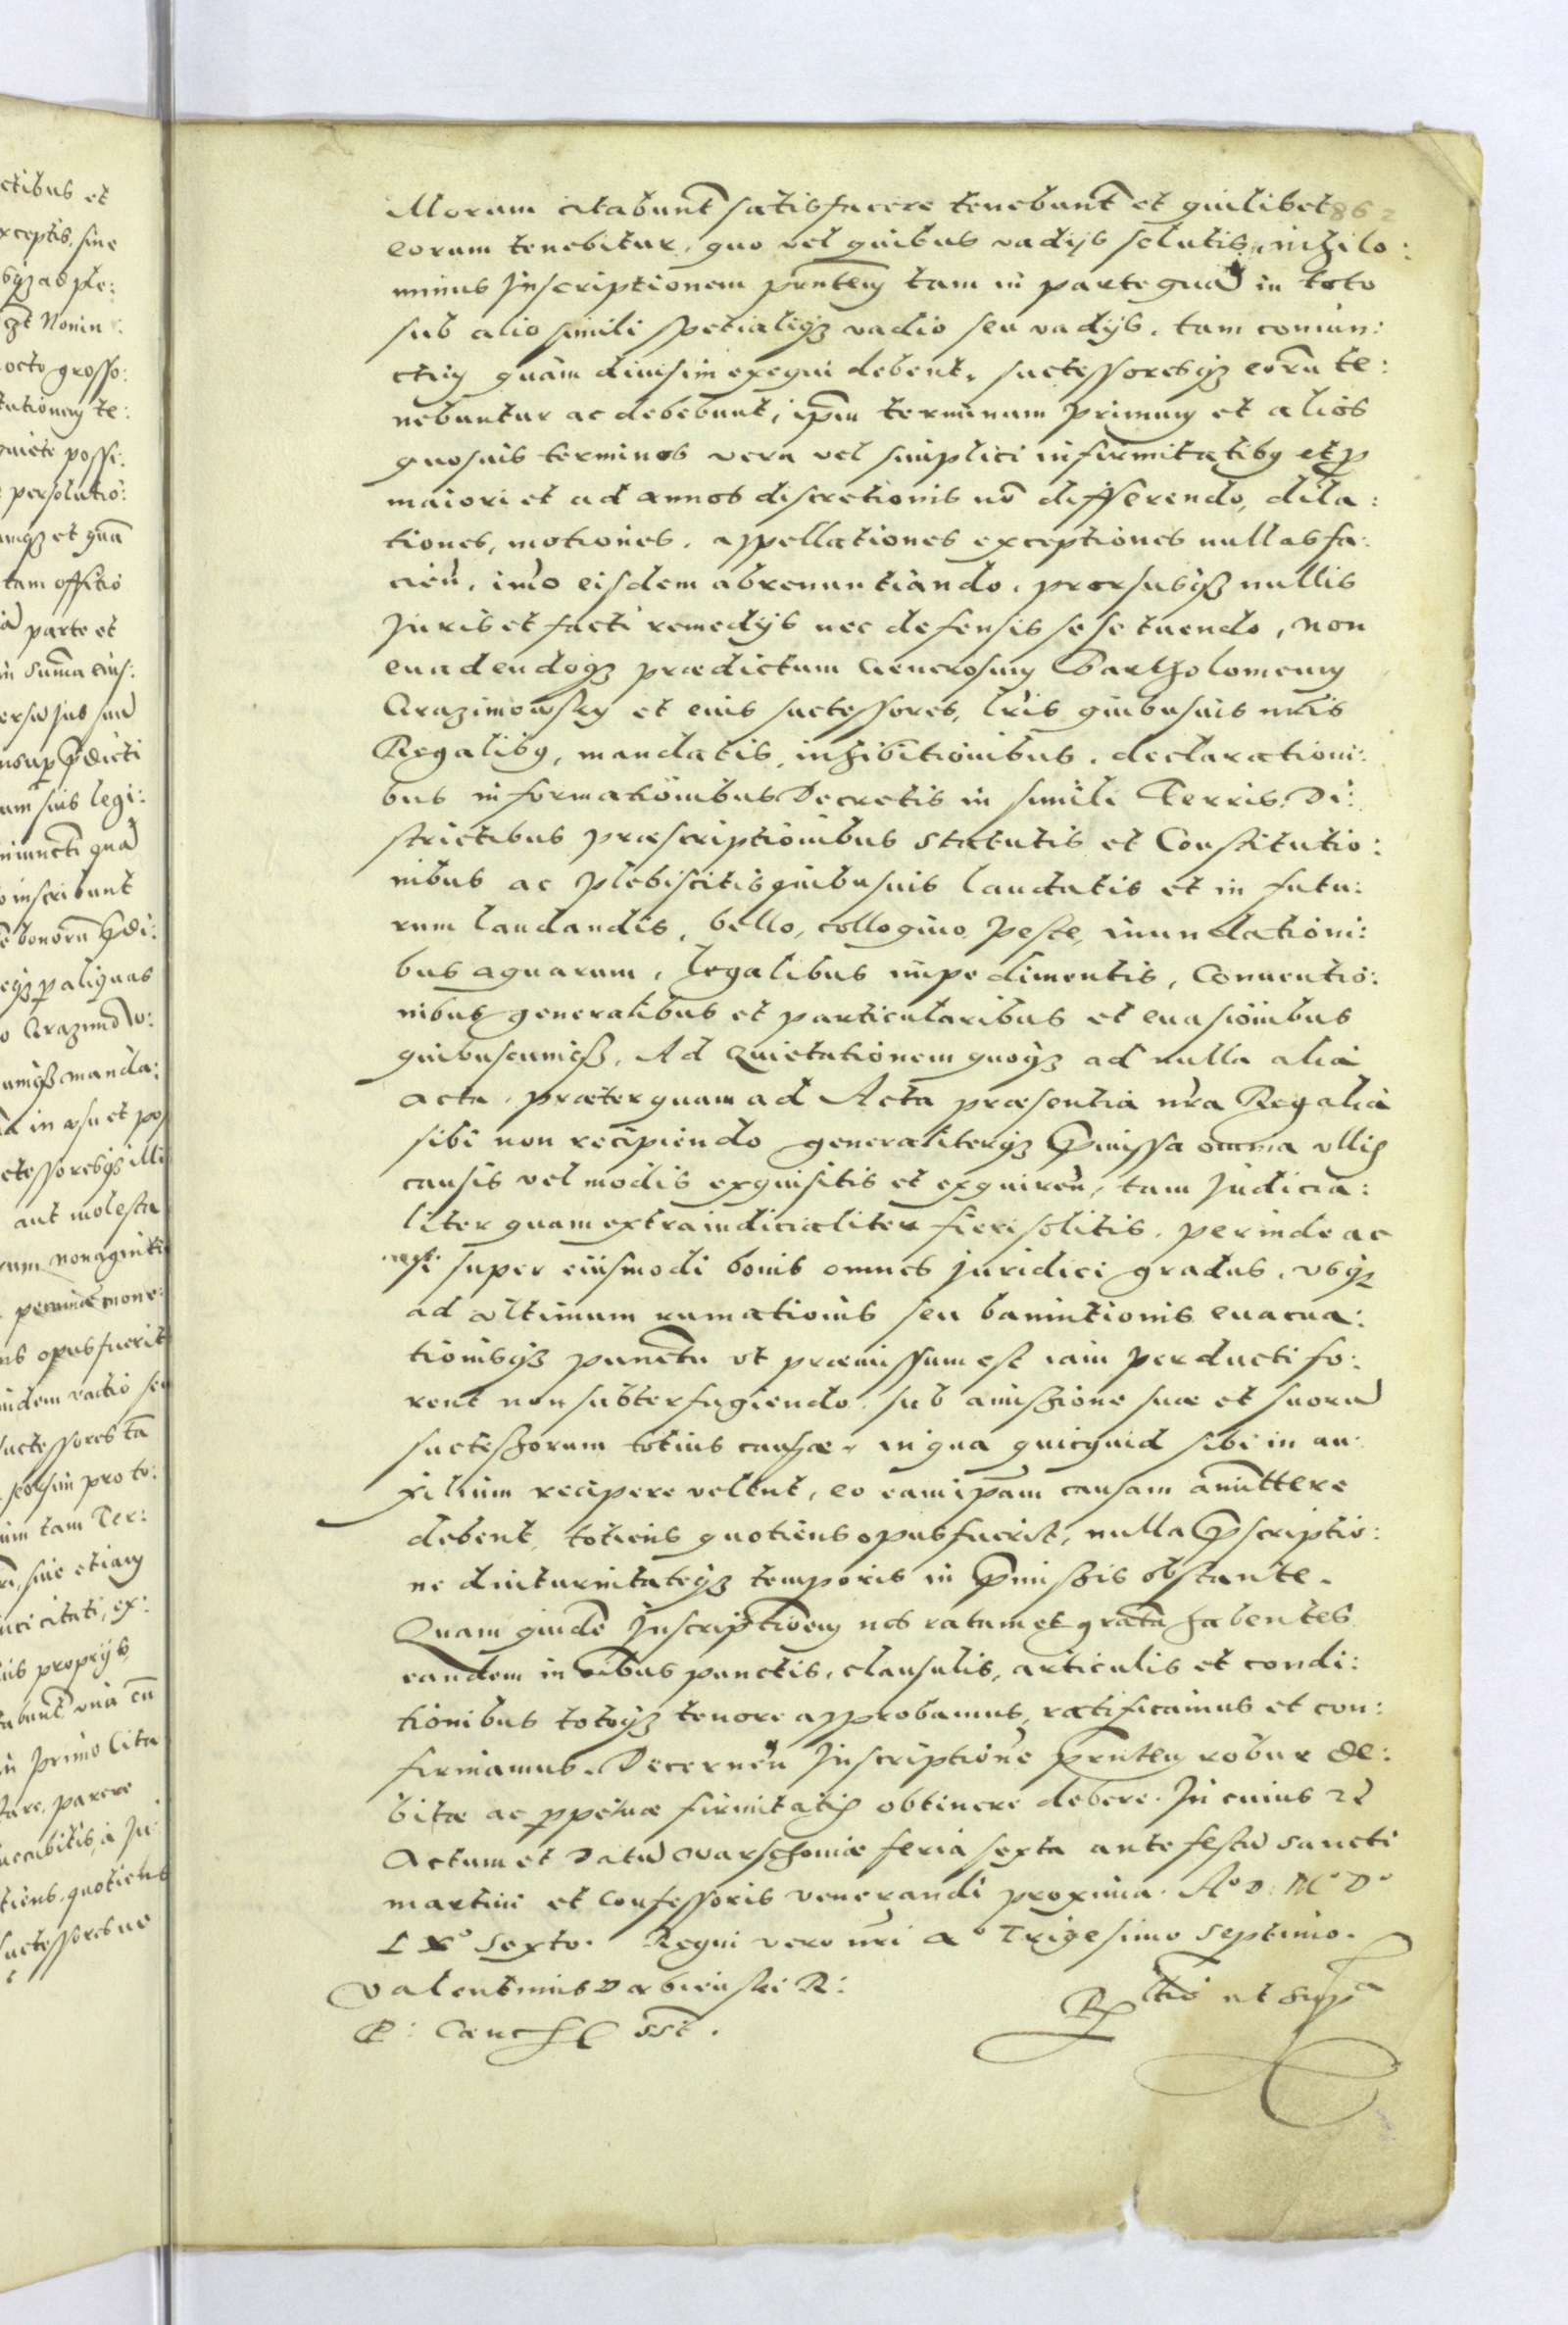 ctibus et
xceptis, sine
bȝ ad ple:
Nonin
octo grosso:
tationem te:
quiete possi:
persolutio:
et quā
tam offitio
parte et
in Sum̄a eius:
insup p̄dicti
am suis legi:
niuncti quā
inscribunt
bonorū p̄di:
p aliquas
o Grazimow:
manda:
in usu et pos
ctessoresqȝ illi
aut molesta
rum nonaginta
pecuniæ mone:
ns opus fuerit
indem vadio seu
suctessores tā
seorsim pro to:
um tam Ter:
siue etiam
nci citati, ex:
uis proprijs
abunt̄ una cū
in primo lita
tare, parere
uccubitis, à Ju:
tiens, quotiens
suctessores ue
illorum citabunt̄ satisfacere tenebunt̄ et quilibet 862
eorum tenebitur, quo vel quibus vadijs solutis, nihilo:
minus Inscriptionem pn̄tem tam in parte quā in toto
sub alio simili spetialiqȝ vadio seu vadijs, tam coniun:
ctim quàm diuisim exequi debent, suctessoresqȝ eorū te:
nebuntur ac debebunt, ip̄m terminum primum et alios
quosuis terminos vera vel simplici infirmitatibus et p
maiori et ad annos discretionis nō differendo, dila:
tiones, motiones, appellationes exceptiones nullas fa:
cien̄, imo eisdem abrenuntiando, prorsusqȝ nullis
Juris et facti remedijs nec defensis se se tuendo, non
euadendoqȝ prædictum Generosum Bartholomeum
Grazimowsky et eius suctessores, lr̄is quibusuis nr̄is
Regalibus, mandatis, inhibitionibus, declarationi:
bus informationibus Decretis in simili Terris, Di:
strictibus præscriptionibus Statutis et Constitutio:
nibus ac plebiscitis quibusuis laudatis et in futu:
rum laudandis, bello, colloquio, peste, inundationi:
bus aquarum, legalibus impedimentis, Conuentio:
nibus generalibus et particularibus et euasionibus
quibuscunqȝ, Ad Quietationem quoqȝ ad nulla alia
acta, præterquam ad Acta præsentia nr̄a Regalia
sibi non recipiendo generaliterqȝ p̄missa omnia ullis
causis vel modis exquisitis et exquiren̄, tam Judicia:
liter quam extraiudicialiter fieri solitis, perinde ac
si super eiusmodi bonis omnes juridici gradus, usqȝ
ad ultimum rumationis seu bannitionis euacua:
tionisqȝ punctu ut præmissum est iam perducti fo:
rent non subterfugiendo, sub amissione suæ et suorū
suctessorum totius causæ, in qua quicquid sibi in au:
xilium recipere vellent, eo eam ip̄am causam amittere
debent, totiens quotiens opus fuerit, nulla p̄scriptio:
ne diuturnitateqȝ temporis in p̄missis obstante.
Quam quidē Inscriptionem nos ratam et gratā habentes
eandem in oībus punctis, clausulis, articulis et condi:
tionibus totoqȝ tenore approbamus, ratificamus et con:
firmamus. Decernen̄ Inscriptionē pn̄tem robur de:
bitæ ac ppetuæ firmitatis obtinere debere. In cuius rē
Actum et Datū Warschouiæ feria sexta ante festū Sancti
martini et Confessoris venerandi proxima. Aº D: Mº Dº
LXº Sexto. Regni vero nr̄i aº Trigesimo Septimo.
Valentinus Dabienski R:
P: Cancell sst.
Rltio ut supra